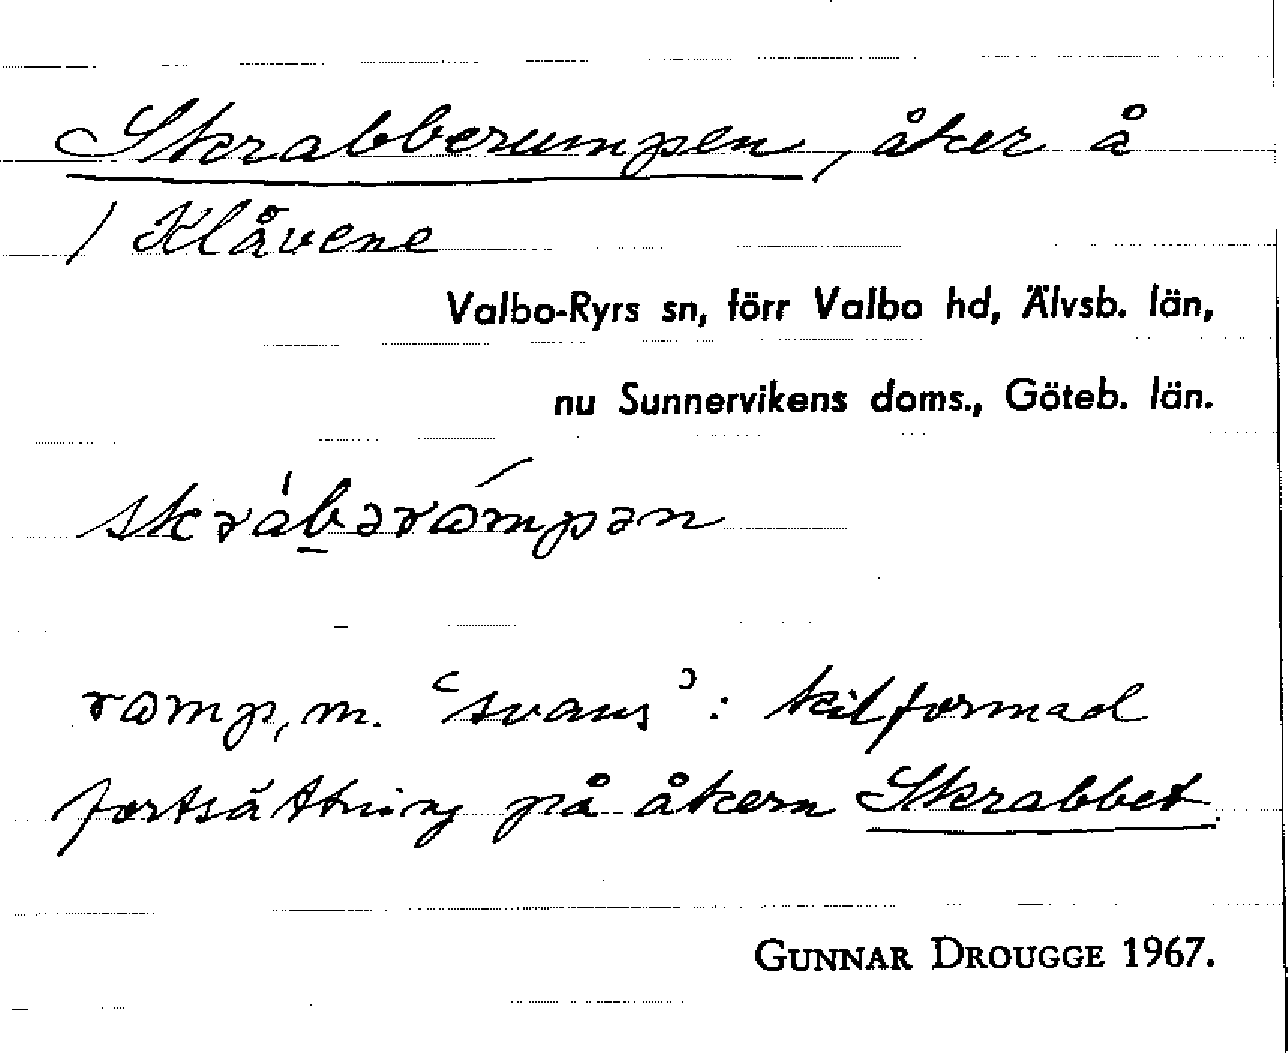 Skrabberumpen, åker å
/ Klåvene
Valbo-Ryrs sn, förr Valbo hd, Älvsb. län,
nu Sunnervikens doms., Göteb. län.
skrábərὼmpən
rωmp, m. ‘svans’: kilformad
fortsättning på åkern Skrabbet.
GUNNAR DROUGGE 1967.